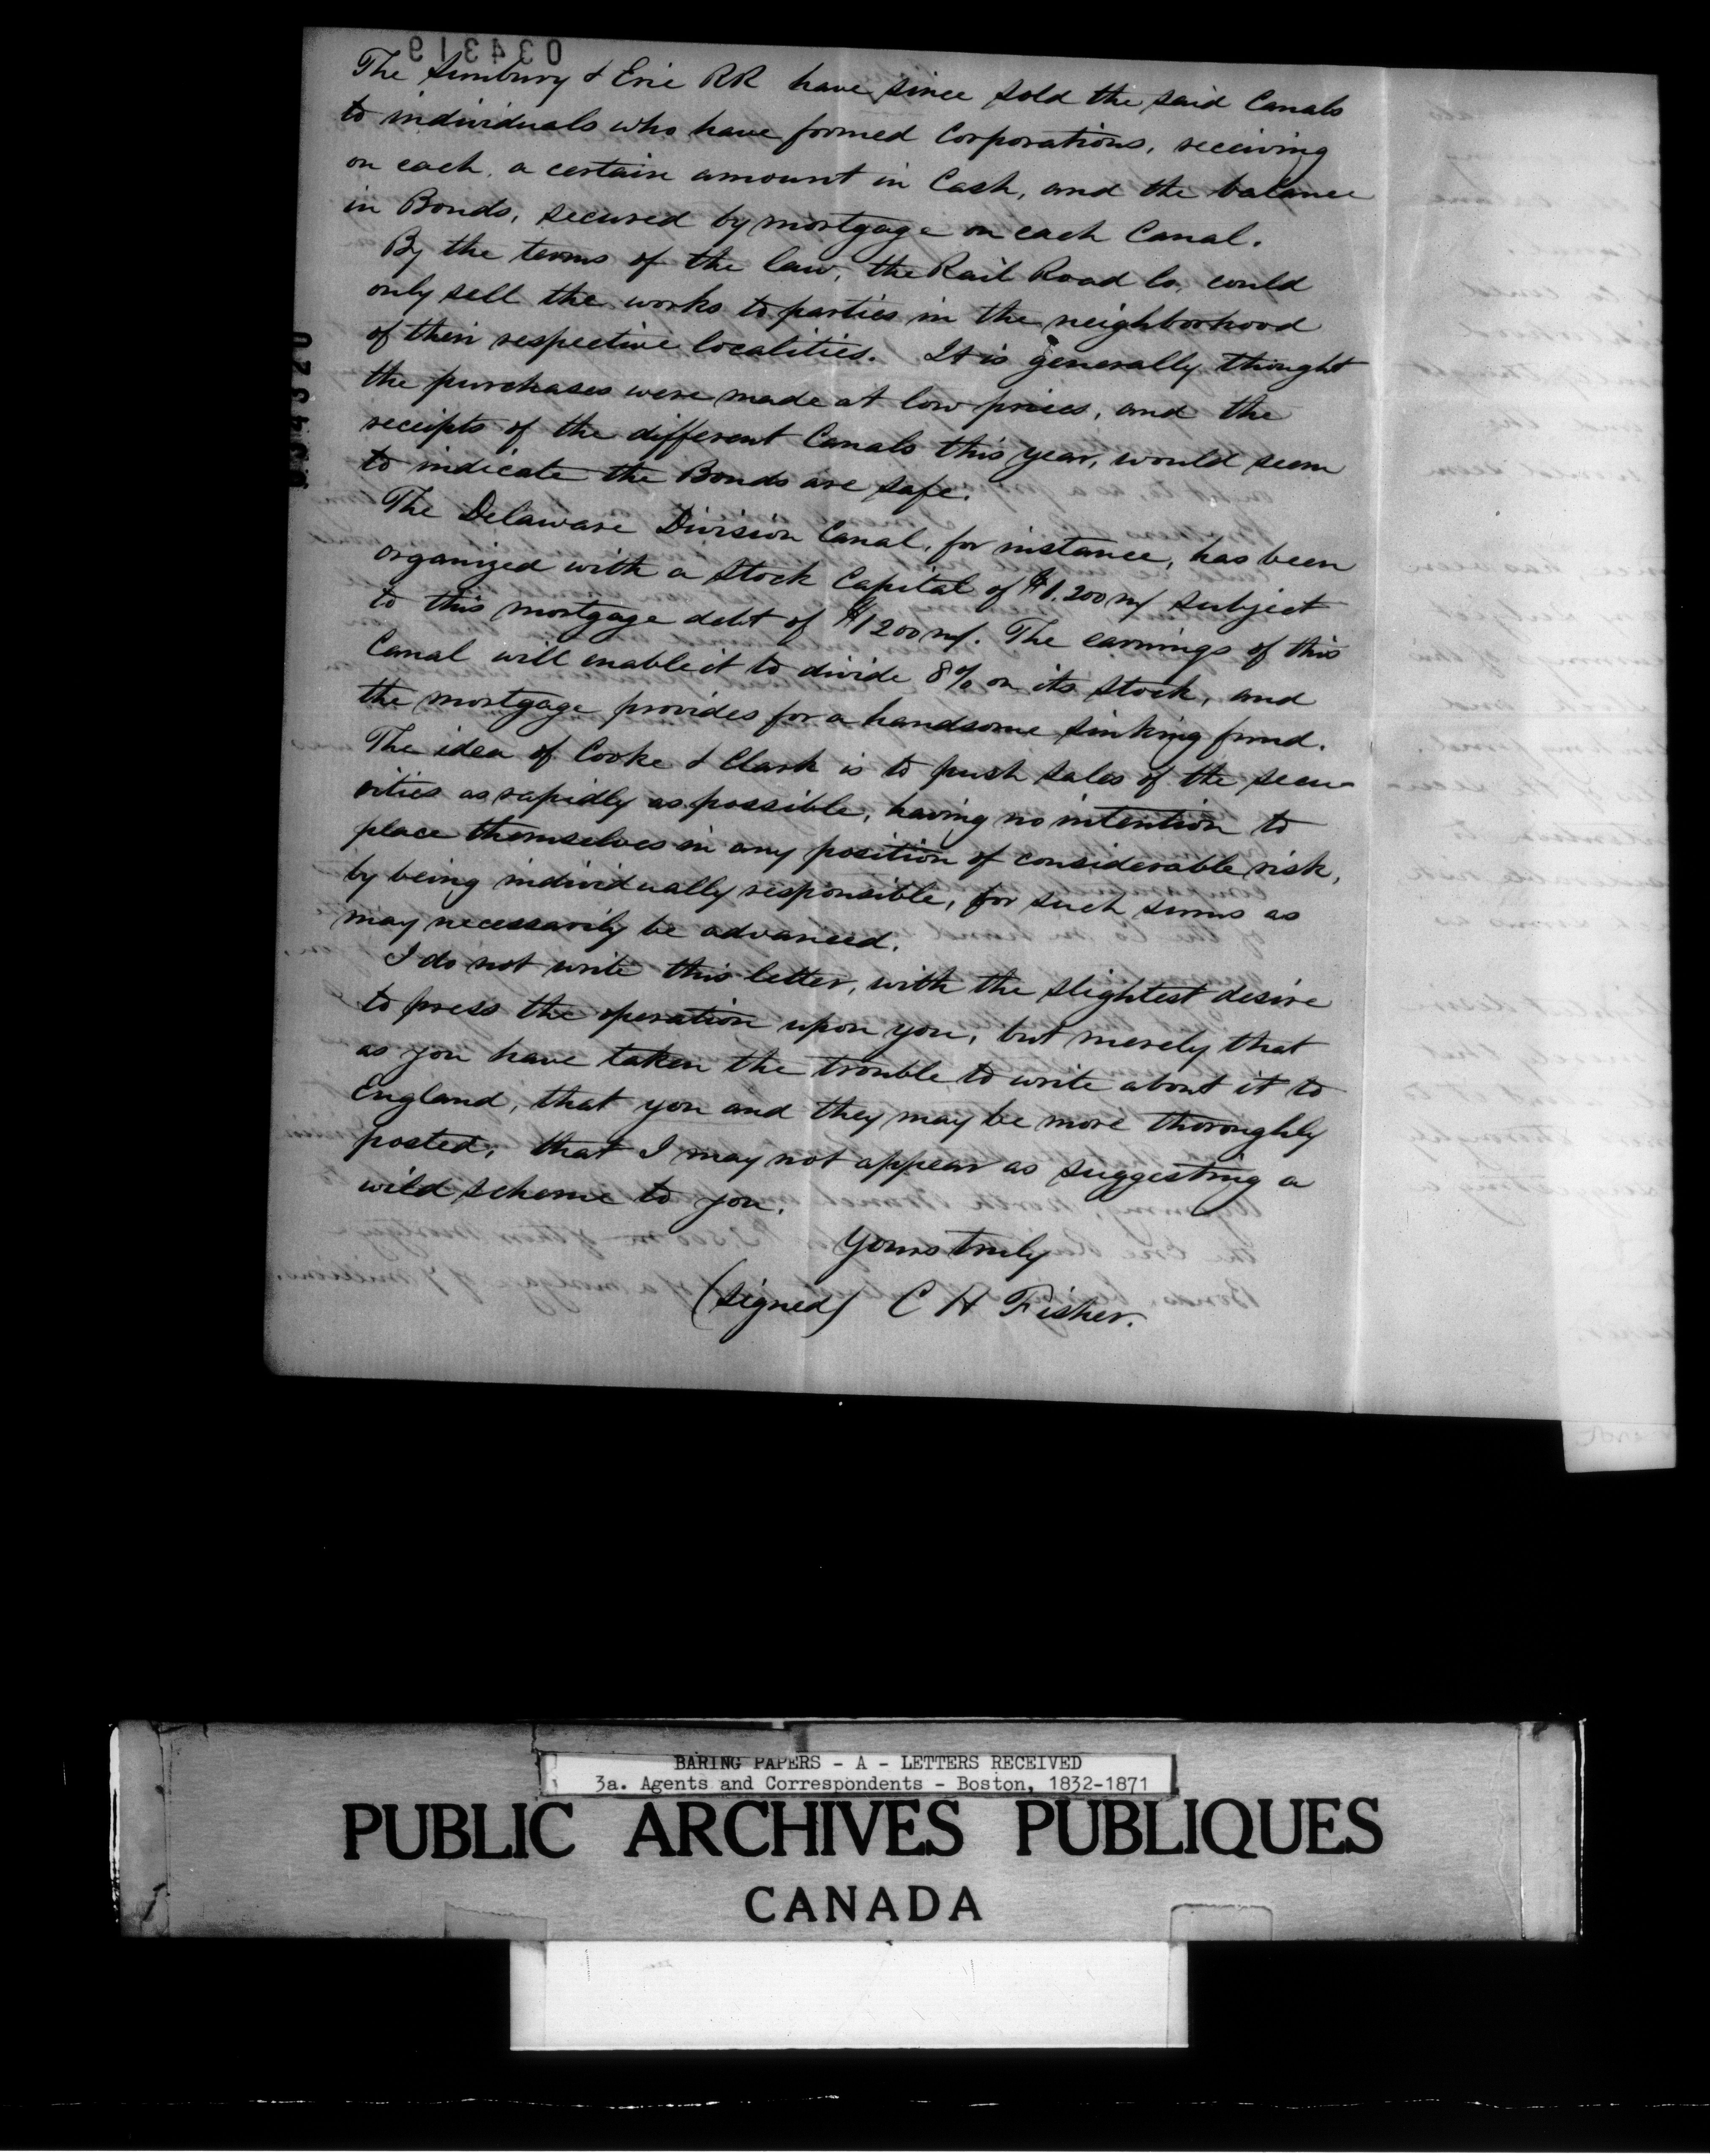 034319
The Sunbury & Erie RR have since sold the said Canals
to individuals who have formed Corporations, receiving
on each, a certain amount in Cash, and the balance
in Bonds, secured by mortgage on each Canal.
By the terms of the law, the Rail Road Co. could
only sell the works to parties in the neighborhood
of their respective localities. It is generally thought
the purchases were made at low prices, and the
receipts of the different Canals this year, would seem
to indicate the Bonds are safe.
The Delaware Division Canal, for instance, has been
organized with a Stock Capital of $1.200 m/ subject
to this mortgage debt of $1200 m/. The earnings of this
Canal will enable it to divide 8% on its stock, and
the mortgage provides for a handsome sinking fund.
The idea of Cooke & Clark is to push sales of the secu-
rities as rapidly as possible, having no intention to
place themselves in any position of considerable risk,
by being individually responsible, for such sums as
may necessarily be advanced.
I do not write this letter, with the slightest desire
to press the operation upon you, but merely that
as you have taken the trouble to write about it to
England, that you and they may be more thoroughly
posted, that I may not appear as suggesting a
wild scheme to you.
Yours truly
(signed) C H Fisher.
034320
BARING PAPERS - A - LETTERS RECEIVED
3a. Agents and Correspondents - Boston, 1832-1871
PUBLIC ARCHIVES PUBLIQUES
CANADA